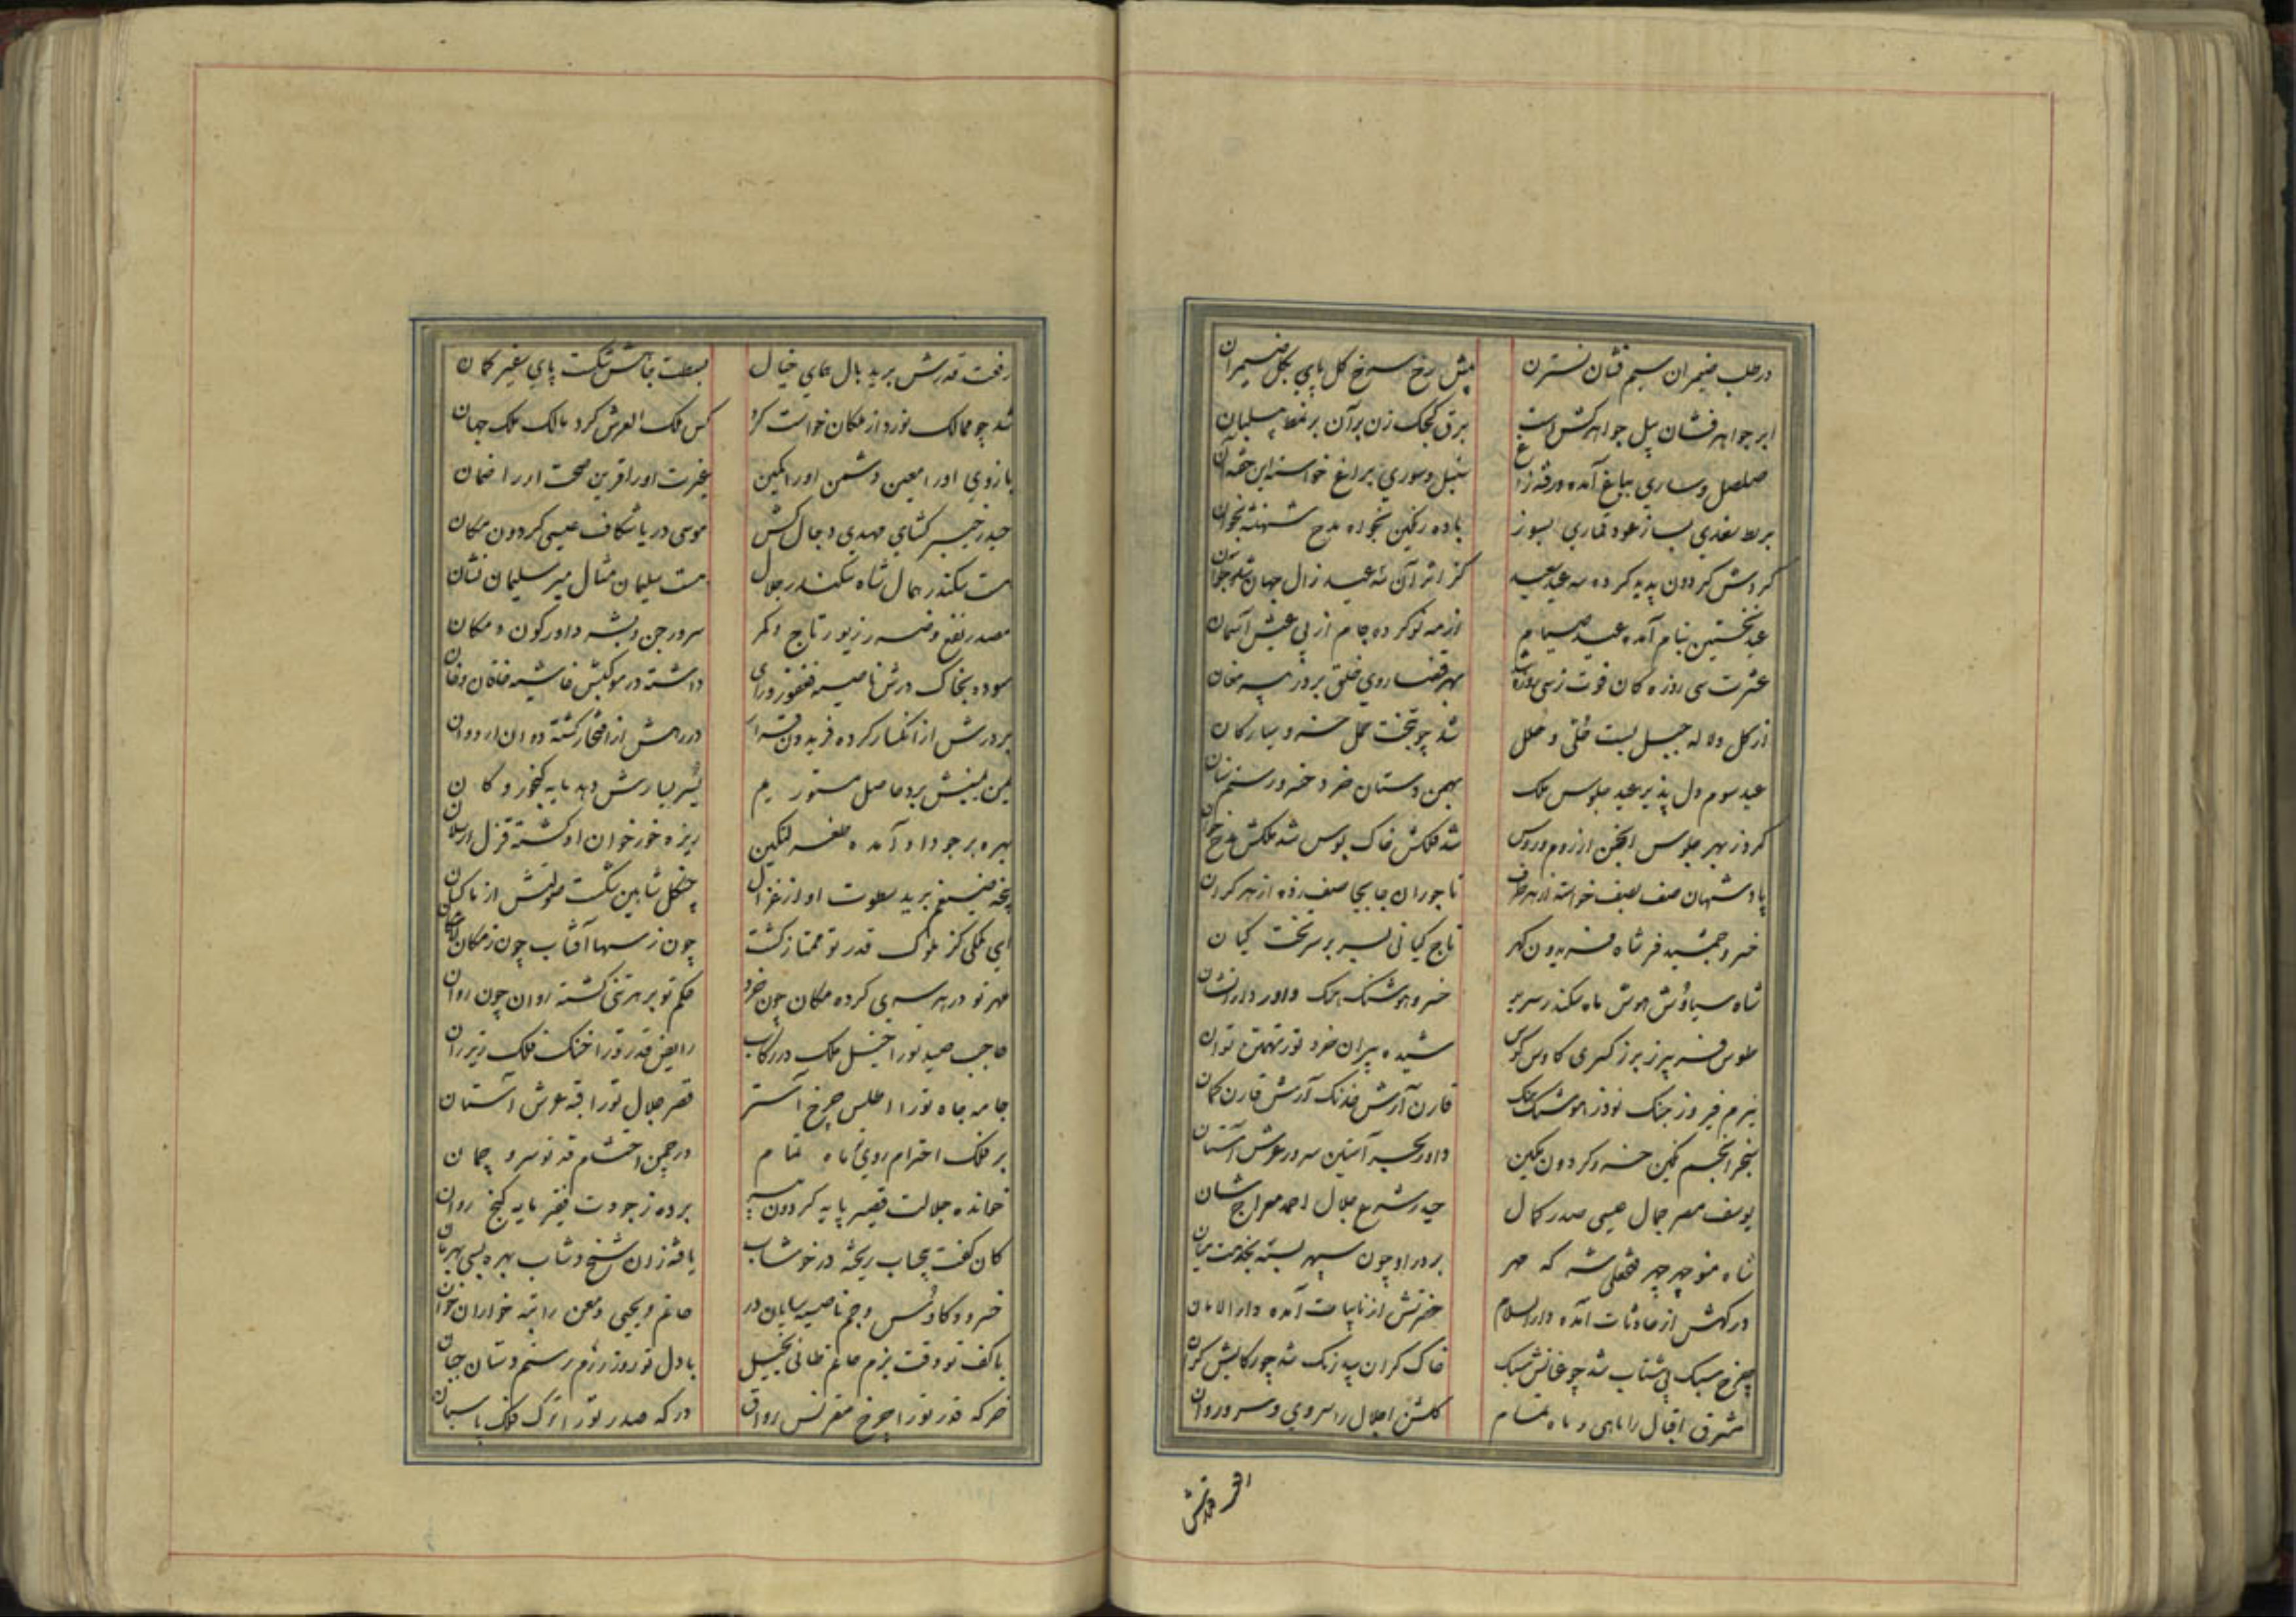 در طلب ضیمران سیم فشان نسترن پیش رخ سرخ گل پای بگل ضیمران
ابر جواهر فشان پیل جواهر کش است برق کجک زن بر آن بر نمط پیلبان
صلصل و ساری بباغ آمده سنبل و سوری براغ خواسته این
بربط سغدی بساز عود قماری بسوز باده رنگین بخواه مدح شهنشه بخوان
گردش گردون پدید کرده سه عید سعید کز اثر آن سه عید زال جهان شد جوان
عید نخستین بنام آمده عید صیام از مه نو کرده جام از پی عیش آسمان
عشرت سی روزه کان فوت ز سی روزه شد بهر قضا روی خلق بر در پیر مغان
از گل و لاله جبل بست حلی و حلل شد چو بتخت حمل خسرو سیارگان
عید سوم دل پذیر عید جلوس ملک بهمن دستان خرد خسرو رستم نشان
کرد ز بهر جلوس انجمن از روم و روس شد فلکش خاک بوس شد ملکش مدح خوان
پادشهان صف بصف خواسته از هر طرف تاجوران جابجا صف زده از هر کران
خسرو جمشید فر شاه فریدون گهر تاج کیانی بسر بر سر تخت کیان
شاه سیاوش هوش ماه سکندر سریر خسرو هوشنگ هنگ داور دارا نشان
طوس فریبرز برز کسری کاوس کوس شیده پیران خرد تور تهمتن توان
نیرم فیروز جنگ نوذر هوشنگ هنگ قارن آرش خدنگ آرش قارن کمان
سنجر انجم نگین خسرو گردون مکین داور بحر آستین سرور عرش آستان
یوسف مصر جمال عیسی صدر کمال حیدر شرع جلال احمد معراج شان
شاه منوچهر چهر فتحعلی شه که مهر بر در او چون سپهر بسته بخدمت میان
درگهش از حادثات آمده دار السلام حضرتش از نایبات آمده دار الامان
چرخ سبک پی شتاب شد چو عنانش سبک خاک گران پی زنگ شد چو رکابش گران
مشرق اقبال را ماهی و ماه تمام گلشن اجلال را سروی و سرو روان
رفعت قدرش برید بال همای خیال بسطت جاهش شکست پای سفیر گمان
شد چو ممالک نورد از ملکان خواست گرد کس فلک العرش کرد مالک ملک جهان
بازوی او را معین دشمن او را کمین نصرت او را قرین صحت او را ضمان
حیدر خیبر گشای مهدی دجال کش موسی دریا شکاف عیسی گردون مکان
هست سکندر همال شاه سکندر جلال هست سلیمان مثال میر سلیمان نشان
مصدر نفع و ضرر زیور تاج و کمر سرور جن و بشر داور کون و مکان
سوده بخاک درش ناصیه فغفور و رای داشته در موکبش غاشیه خاقان و خان
بر درش از انکسار کرده فریدون قرار در رهش از افتخار گشته دوان اردوان
یمن یمینش برد حاصل مستور یم یسر یسارش دهد مایه گنجور و کان
بهره بر جود او آمده طغرلتگین ریزه خور خوان او گشته قزل ارسلان
پنجه ضیغم برید سطوت او از غزال چنگل شاهین شکست صولتش از ماکیان
ای ملکی کز ملوک قدر تو ممتاز گشت چون ز سها آفتاب چون ز مکان لامکان
مهر تو در هر سری کرده مکان چون خرد حکم تو بر هر تنی گشته روان چون روان
حاجب صید تو را خیل ملک در رکاب رایض قدر تو را خنگ فلک زیر ران
جامه جاه تو را اطلس چرخ آستر قصر جلال تو را قبه عرش آستان
بر فلک احترام روی تو ماه تمام در چمن احتشام قد تو سرو چمان
خوانده جلالت قصیر پایه گردون مسیر برده ز جودت فقیر مایه گنج روان
کان کفت بیحجاب ریخته در خوشاب یافته زان شیخ و شاب بهره بسی بهرمان
خسرو و کاوس و جم ناصیه سایان در حاتم و یحیی و معن راتبه خواران خوان
با کف تو وقت بزم حاتم طائی بخیل با دل تو روز رزم رستم دستان جبان
خرگه قدر تو را چرخ مقرنس رواق درگه صدر تو را ترک فلک پاسبان